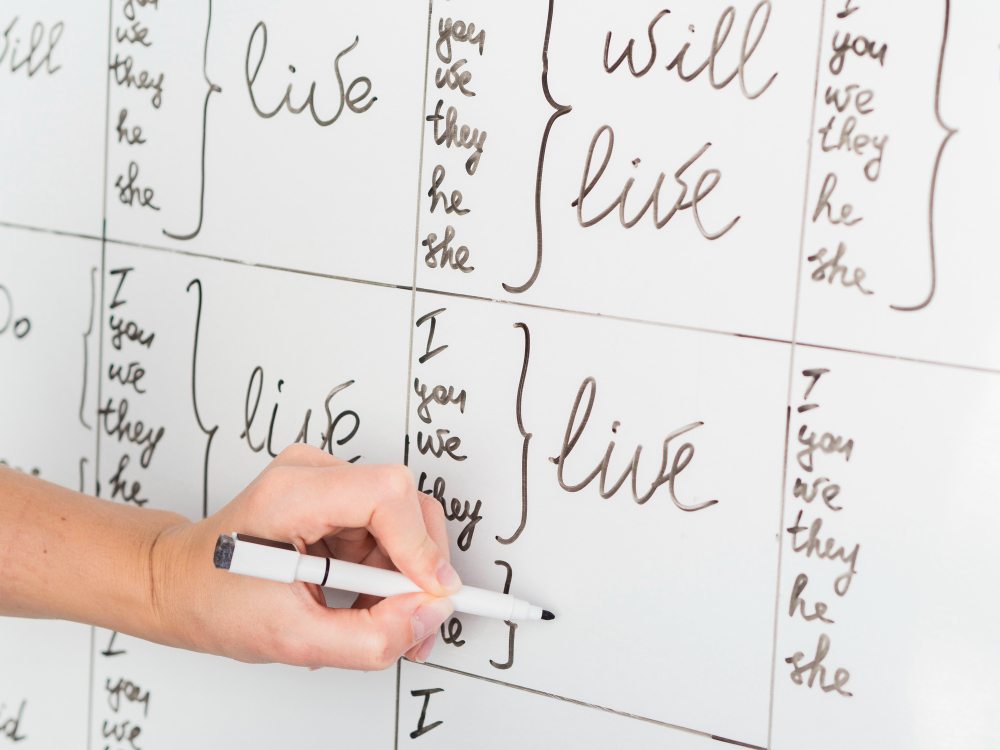 will
we
they
he
she
live
you
we
they
he
she
will
live
I
you
we
they
he
she
I
you
we
they
he
live
I
you
we
they
live
I
you
we
they
he
she
I
you
we
I